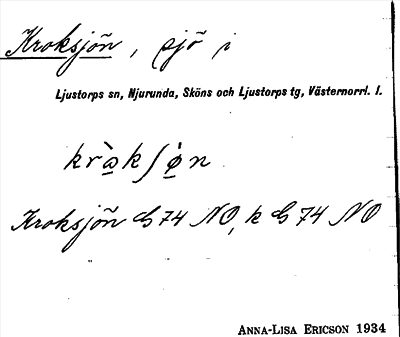 Kroksjön, sjö i
Ljustorps sn, Njurunda, Sköns och Ljustorps tg, Västernorrl. l.
kràkʃø̀n
Kroksjön G 74 NO, k G 74 NO
ANNA-LISA ERICSON 1934